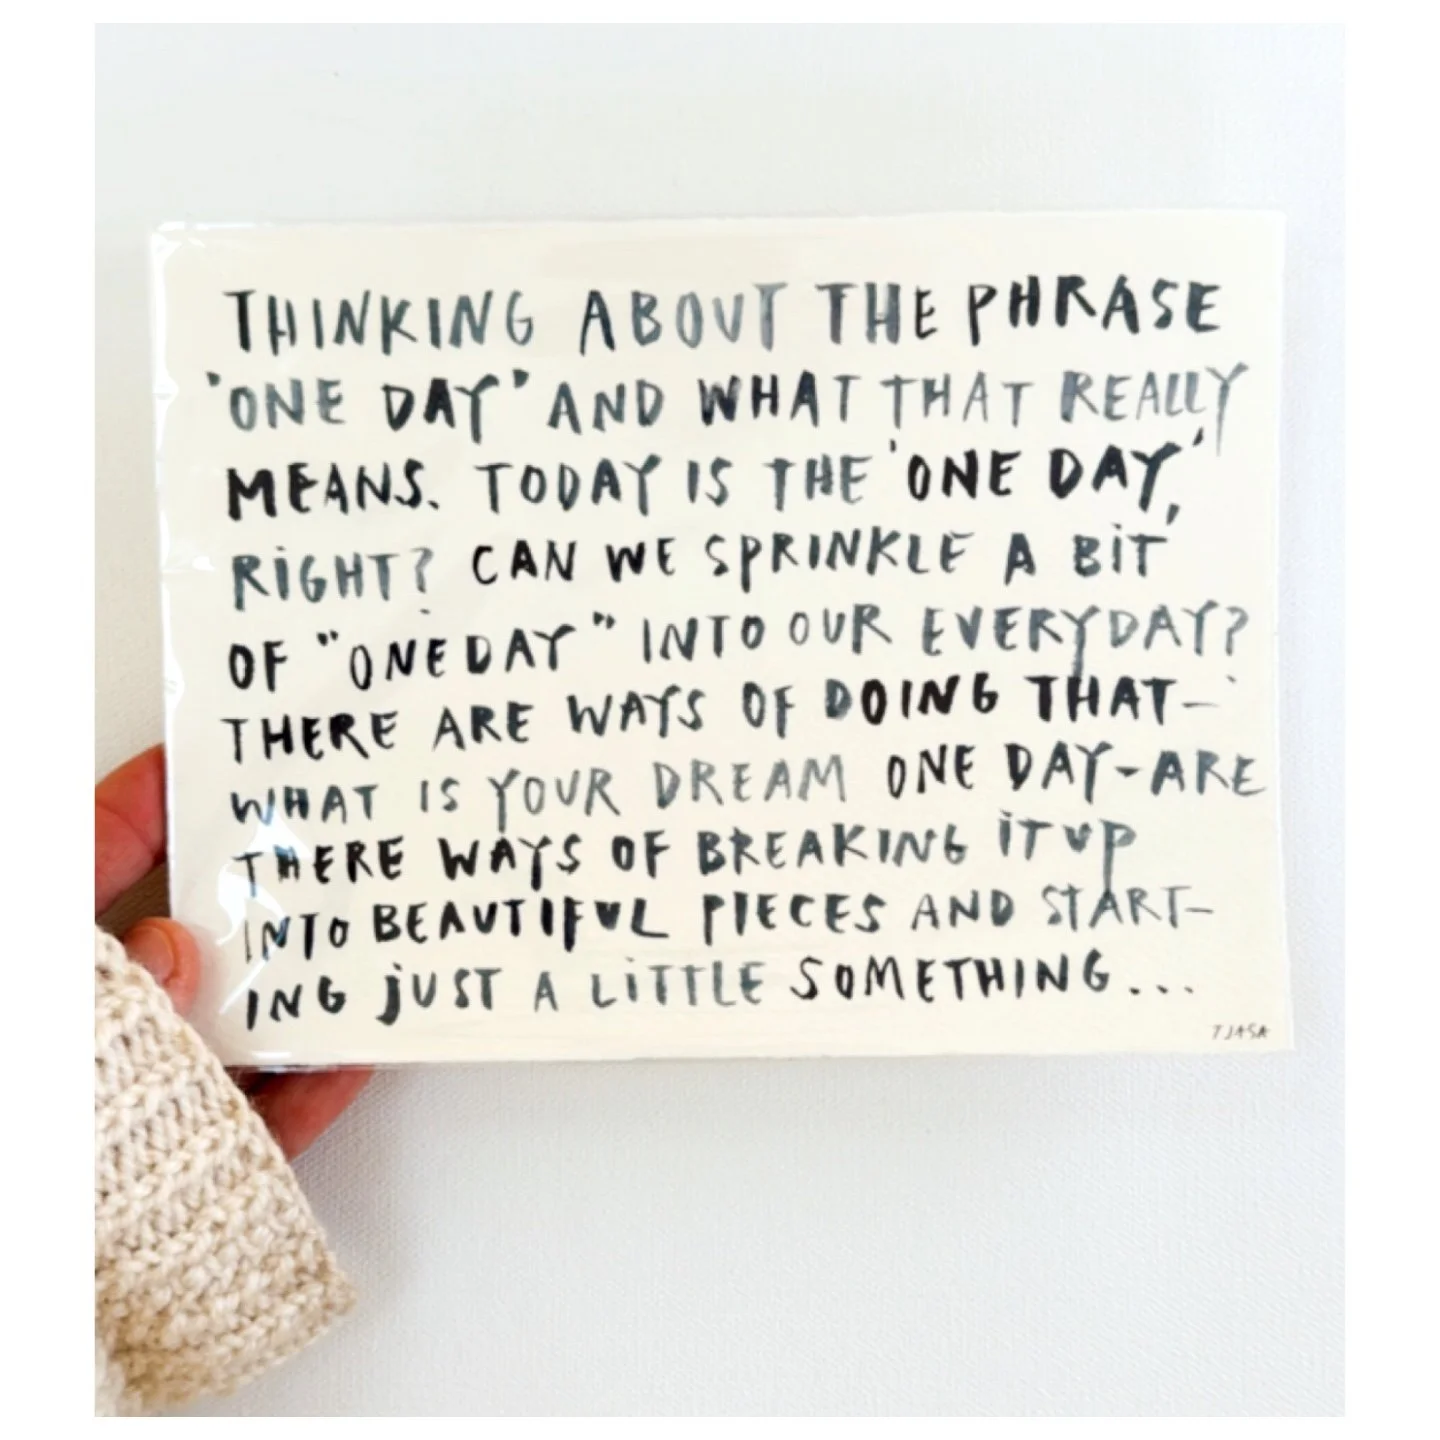 THINKING ABOUT THE PHRASE
'ONE DAY' AND WHAT THAT REALLY
MEANS. TODAY IS THE 'ONE DAY,'
RIGHT? CAN WE SPRINKLE A BIT
OF "ONE DAY" INTO OUR EVERYDAY?
THERE ARE WAYS OF DOING THAT-
WHAT IS YOUR DREAM ONE DAY-ARE
THERE WAYS OF BREAKING IT UP
INTO BEAUTIFUL PIECES AND START-
ING JUST A LITTLE SOMETHING...
TJASA